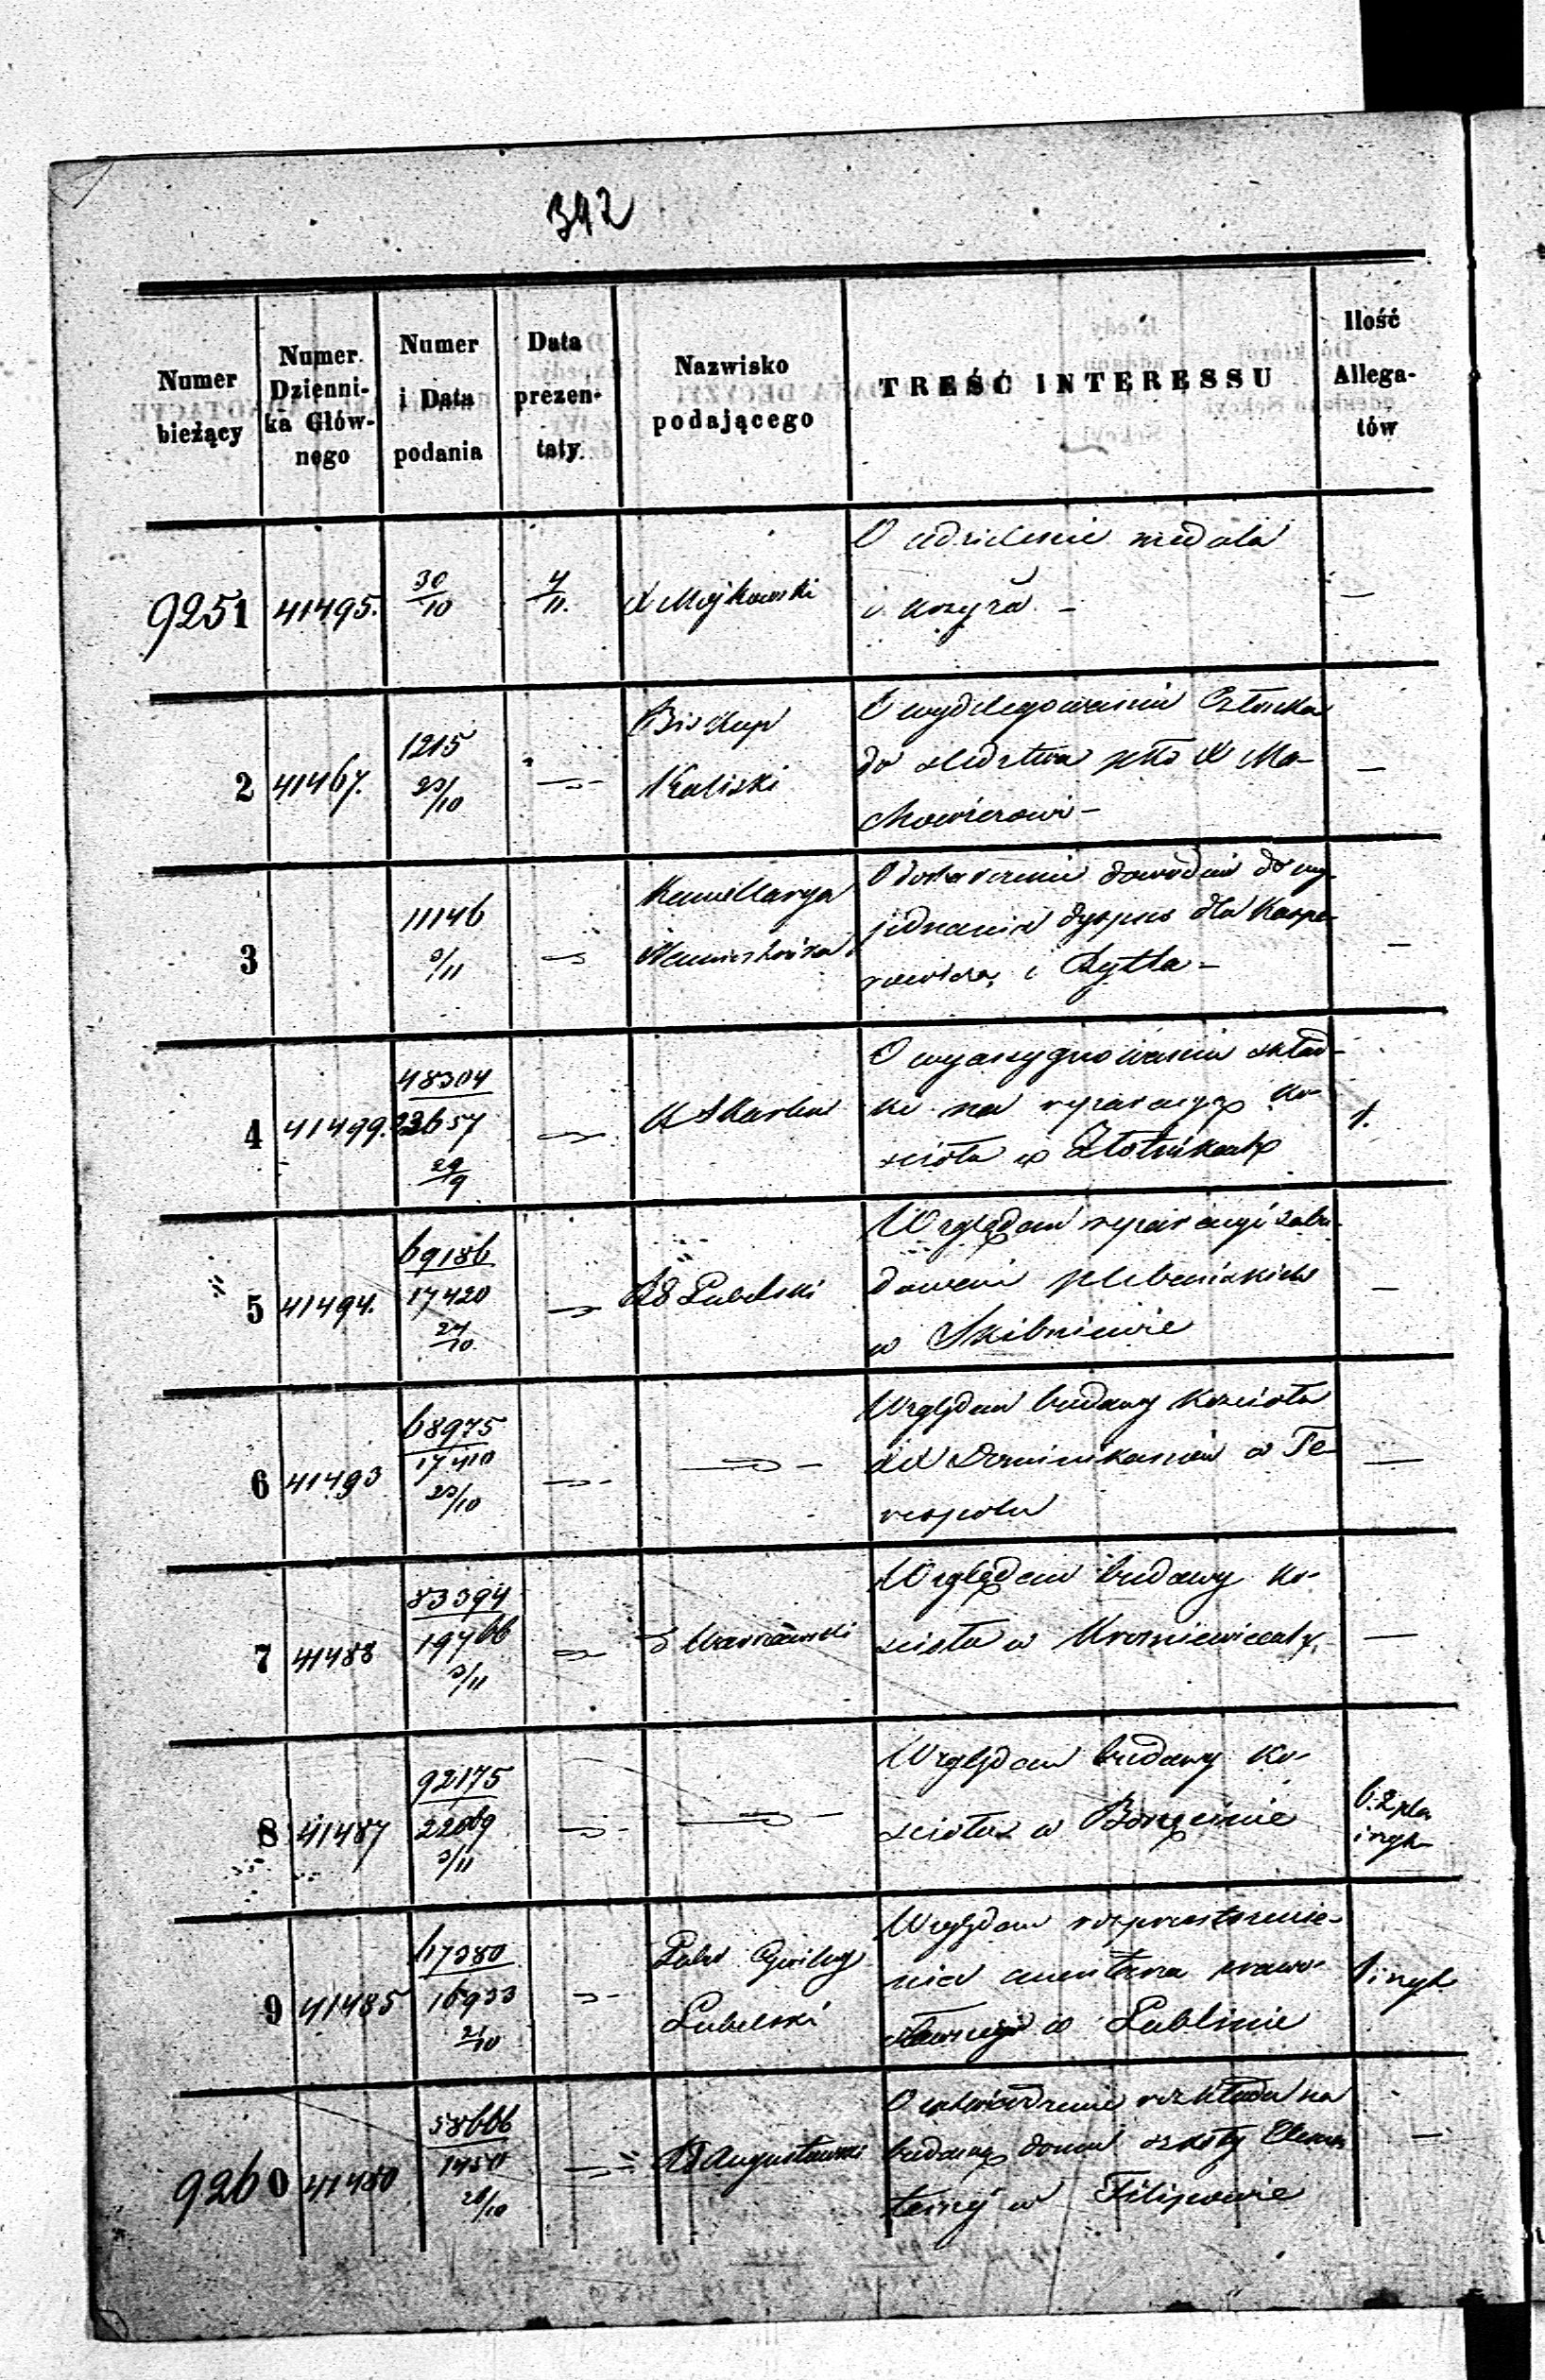 342
Numer bieżący
Numer Dzienni-ka Głów-nego
Numer i Data podania
Data prezen-taty.
Nazwisko podającego
TREŚĆ INTERESSU
Ilość Allega-tów
9251 41495. 30/10 4/11. X Mojkowski
O udzielenie medala
i krzyża –
—
2 41467. 1215 23/10
Biskup
Kaliski
O wydelegowaniu Członka
do śledztwa X Ma-
chowiczowi –
—
3 11146 3/11
O dostarczenie dowodów do wy-
jednania dyspens dla Kaspe-
rowicza i Rytla –
—
4 41499. 48304 22657 29/9
O wyassygnowanie skład-
ki na reparacyą ko-
ścioła w Złotnikach
1.
5 41494. 69186 17420 24/10
RG Lubelski
Względem reparacyi zabu-
dowań plebańskich
w Skibniewie
—
6 41493 68975 17410 23/10
Względem budowy kościoła
XX Dominikanów w Te-
respolu
—
7 41488 83394 19766 3/11
Warszawski
Względem budowy ko-
ścioła w Krośniewicach
—
8 41487 92175 22069 3/11
Względem budowy ko-
ścioła w Borzęcinie
6. 2 pla i rys
9 41485 67380 16933 21/10
Gub Cywilny
Lubelski
Względem rozprzestrzenie-
nia cmentarza prawo-
sławnego w Lublinie
1 i rys
9260 41480 58666 1450 26/10
RG Augustowski
O zatwierdzenie rozkładu na
budowę domu szkoły Elemen
tarnej w Filipowie
—